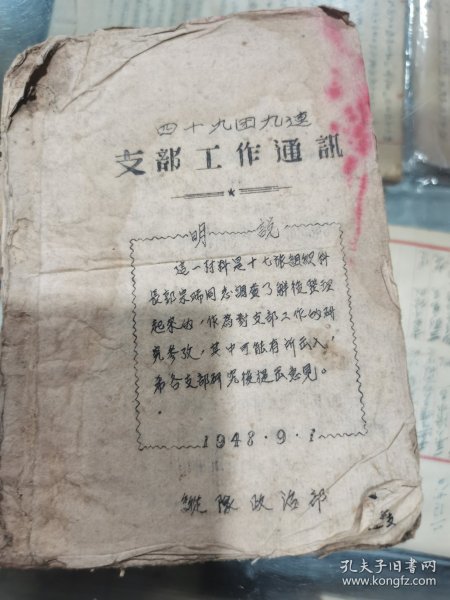 四十九团九連
支部工作通訊
明 説
這一材料是十七旅組織科
長郭崇瑞同志調查了解後整理
起来的,作為對支部工作的研
究参攷,其中可能有所出入,
希各支部研究後提出意見。
1948.9.1
縱隊政治部
孔夫子旧书网
www.kongfz.com